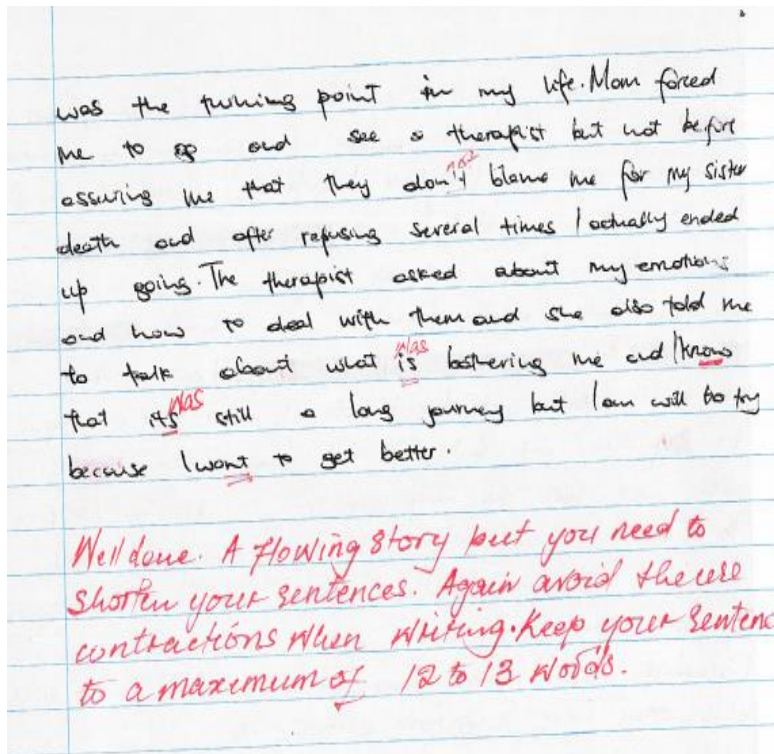 was the turning point in my life. Mom forced
me to go and see a therapist but not before
not
assuring me that they don't blame me for my sister
death and after refusing several times I actually ended
up going. The therapist asked about my emotions
and how to deal with them and she also told me
was
to talk about what is bothering me and I know
was
that its still a long journey but I am will to try
because I want to get better.
Well done. A flowing story but you need to
shorten your sentences. Again avoid the use
contractions when writing. Keep your sentenc
to a maximum of 12 to 13 words.